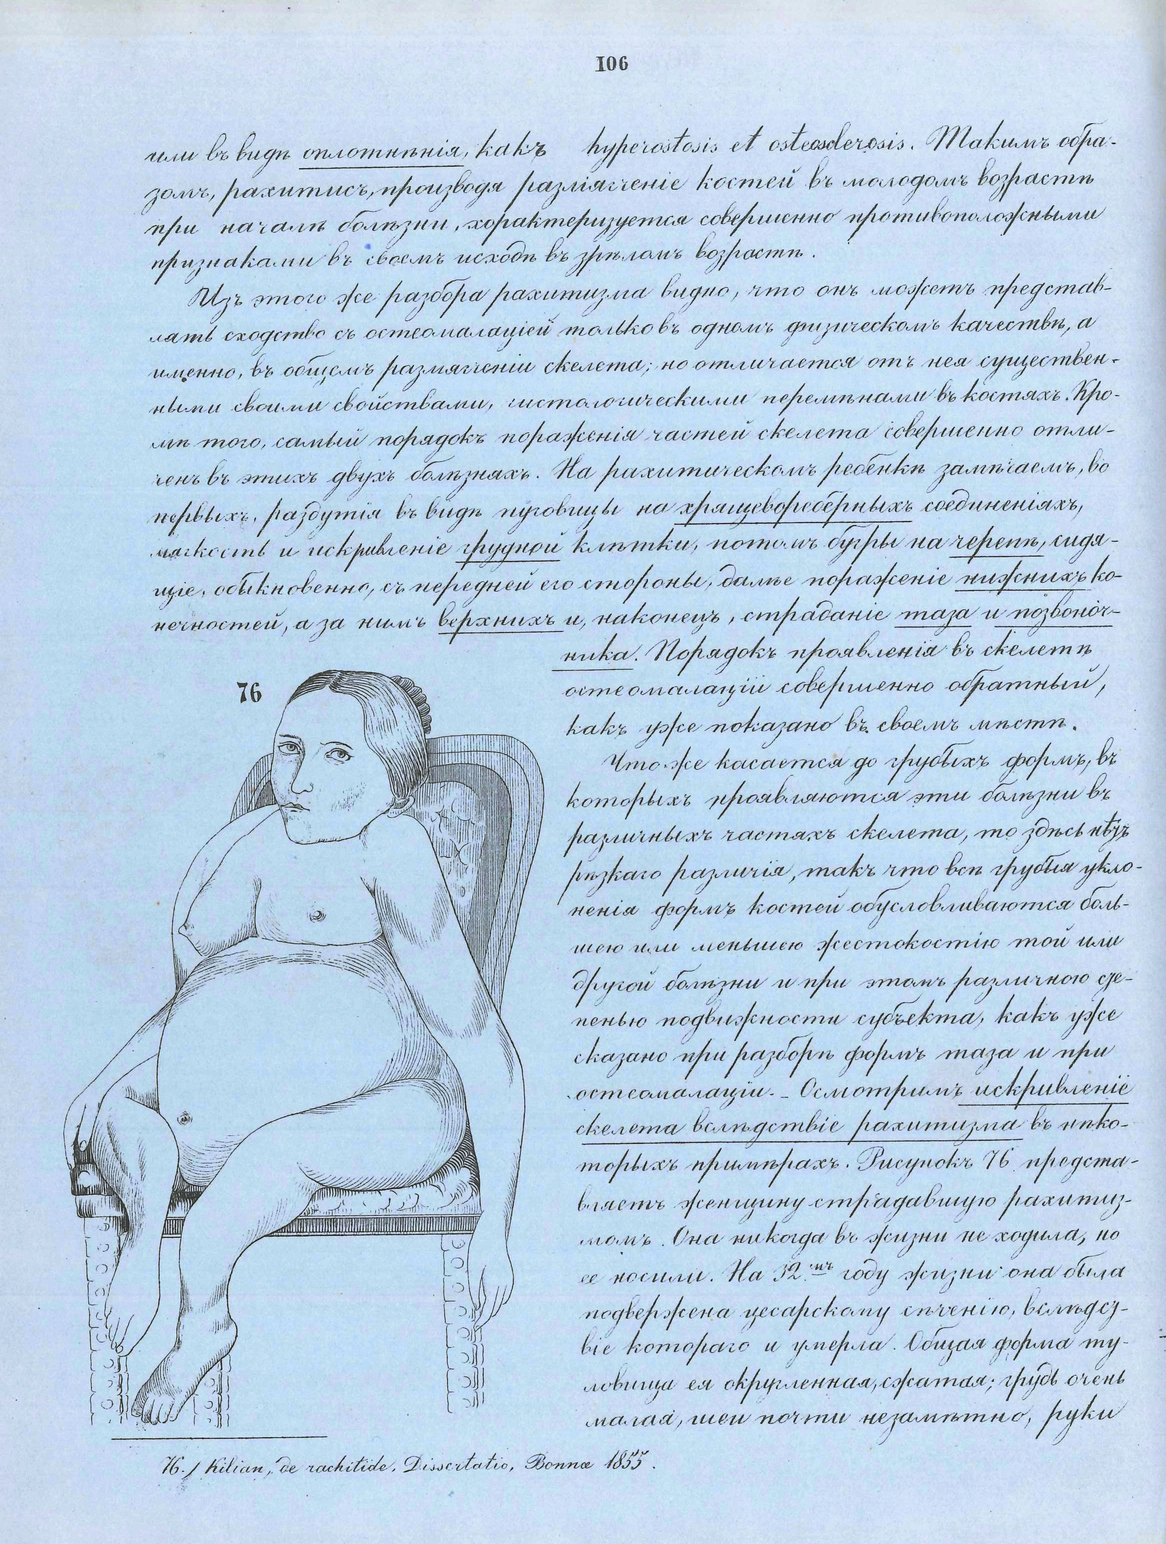 106
или въ видѣ оплотнѣнія, какъ hyperostosis et osteosclerosis. Такимъ обра-
зомъ, рахитисъ, производя размягченіе костей въ молодомъ возрастѣ
при началѣ болѣзни, характеризуется совершенно противоположными
признаками въ своемъ исходѣ въ зрѣломъ возрастѣ.
Изъ этого же разбора рахитизма видно, что онъ можетъ представ-
лять сходство съ остеомалаціей только въ одномъ физическомъ качествѣ, а
именно, въ общемъ размягченіи скелета; но отличается отъ нея существен-
ными своими свойствами, гистологическими перемѣнами въ костяхъ. Кро-
мѣ того, самый порядокъ пораженія частей скелета совершенно отли-
ченъ въ этихъ двухъ болѣзняхъ. На рахитическомъ ребенкѣ замѣчаемъ, во
первыхъ, раздутія въ видѣ пуговицы на хрящевореберныхъ соединеніяхъ,
мягкость и искривленіе грудной клѣтки, потомъ бугры на черепѣ, сидя-
щіе, обыкновенно, съ передней его стороны, далѣе пораженіе нижнихъ ко-
нечностей, а за нимъ верхнихъ и, наконецъ, страданіе таза и позвоноч-
ника. Порядокъ проявленія въ скелетѣ
остеомалаціи совершенно обратный,
какъ уже показано въ своемъ мѣстѣ.
Что же касается до грубыхъ формъ, въ
которыхъ проявляются эти болѣзни въ
различныхъ частяхъ скелета, то здѣсь нѣтъ
рѣзкаго различія, такъ что всѣ грубыя укло-
ненія формъ костей обусловливаются боль-
шею или меньшею жестокостію той или
другой болѣзни и при этомъ различною сте-
пенью подвижности субъекта, какъ уже
сказано при разборѣ формъ таза и при
остеомалаціи. – Осмотримъ искривленіе
скелета вслѣдствіе рахитизма въ нѣко-
торыхъ примѣрахъ. Рисунокъ 76 предста-
вляетъ женщину страдавшую рахитиз-
момъ. Она никогда въ жизни не ходила, но
ее носили. На 32мъ году жизни она была
подвержена цесарскому сѣченію, вслѣдст-
віе котораго и умерла. Общая форма ту-
ловища ея округленная, сжатая; грудь очень
малая, шеи почти незамѣтно, руки
76
76.) Kilian, de rachitide, Dissertatio, Bonnæ 1855.